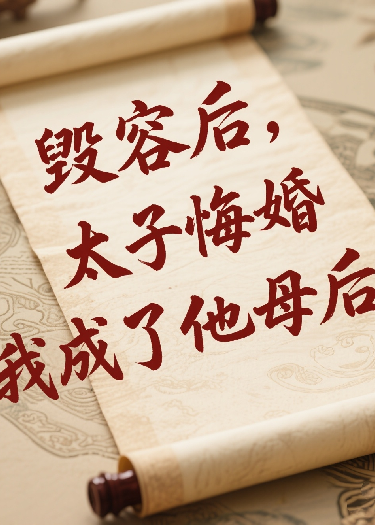 毁容后，
太子悔婚
我成了他母后